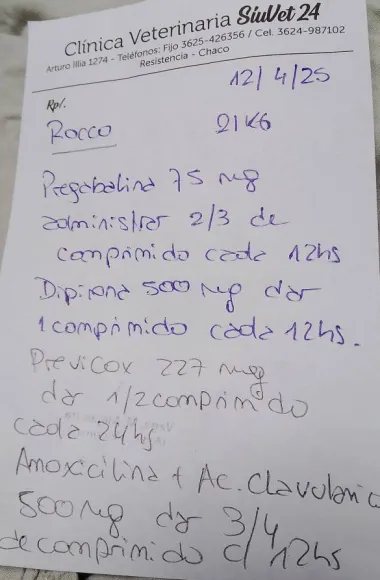 Clínica Veterinaria SiuVet 24
Arturo Illia 1274 - Teléfonos: Fijo 3625-426356 / Cel. 3624-987102
Resistencia - Chaco
12/4/25
Rp/.
Rocco 21KG
Pregabalina 75 mg
administrar 2/3 de
comprimido cada 12hs
Dipirona 500 mg dar
1 comprimido cada 12hs.
Previcox 227 mg
dar 1/2 comprimido
cada 24hs
Amoxicilina + Ac. Clavulanic
500mg dar 3/4
de comprimido c/ 12hs